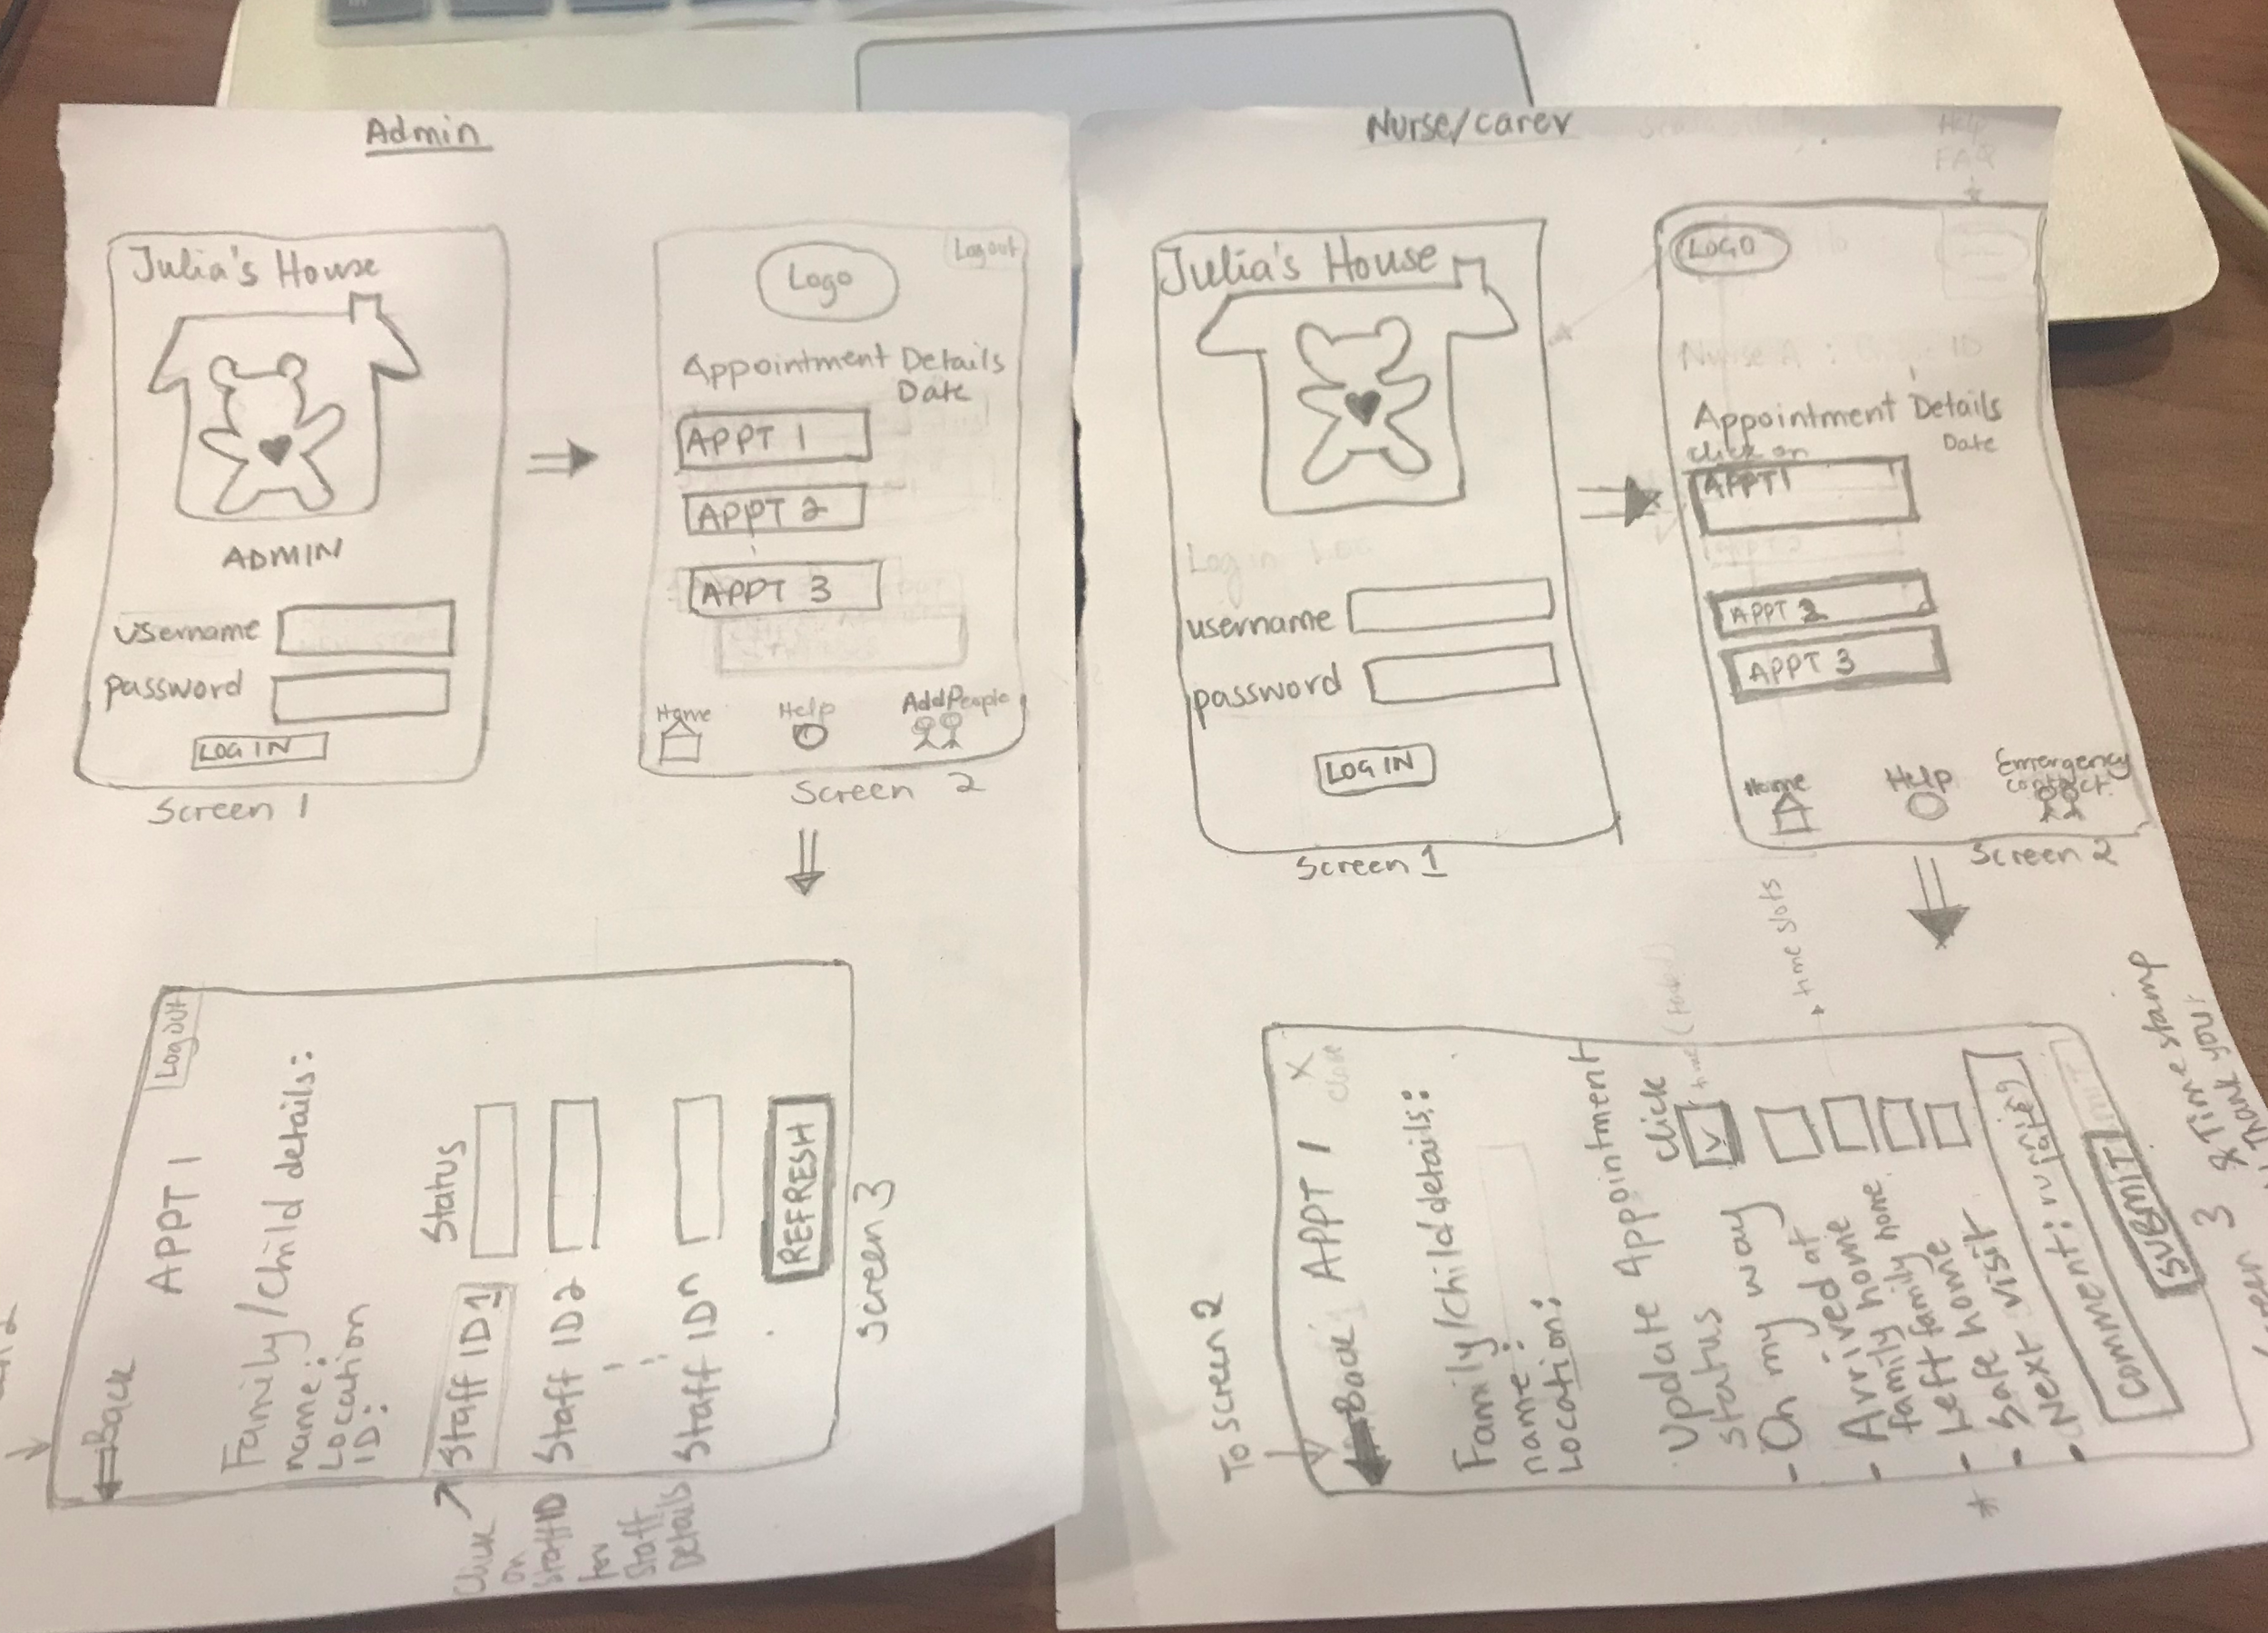 Admin
Julia's House
ADMIN
username
password
LOG IN
Screen 1
Logo
Log out
Appointment Details
Date
APPT 1
APPT 2
APPT 3
Home
Help
Add People
Screen 2
Back
APPT 1
Log out
Family/child details:
name:
Location
ID:
Status
Staff ID1
Staff ID2
Staff IDn
REFRESH
Screen 3
Click
on
StaffID
for
Staff
Details
Nurse/carer
Julia's House
Log in
username
password
LOG IN
Screen 1
Help
FAQ
LOGO
Nurse A : ID
Appointment Details
Date
click on
APPT1
APPT 2
APPT 3
Home
Help
Emergency
contact
Screen 2
To screen 2
Back
APPT 1
X
close
Family/child details:
name:
Location:
Update Appointment
status
click
time
time slots
• On my way
• Arrived at
family home
• Left family home
home
• Safe visit
• Next
comment: running
late
SUBMIT
& Time stamp
Thank you
Screen 3